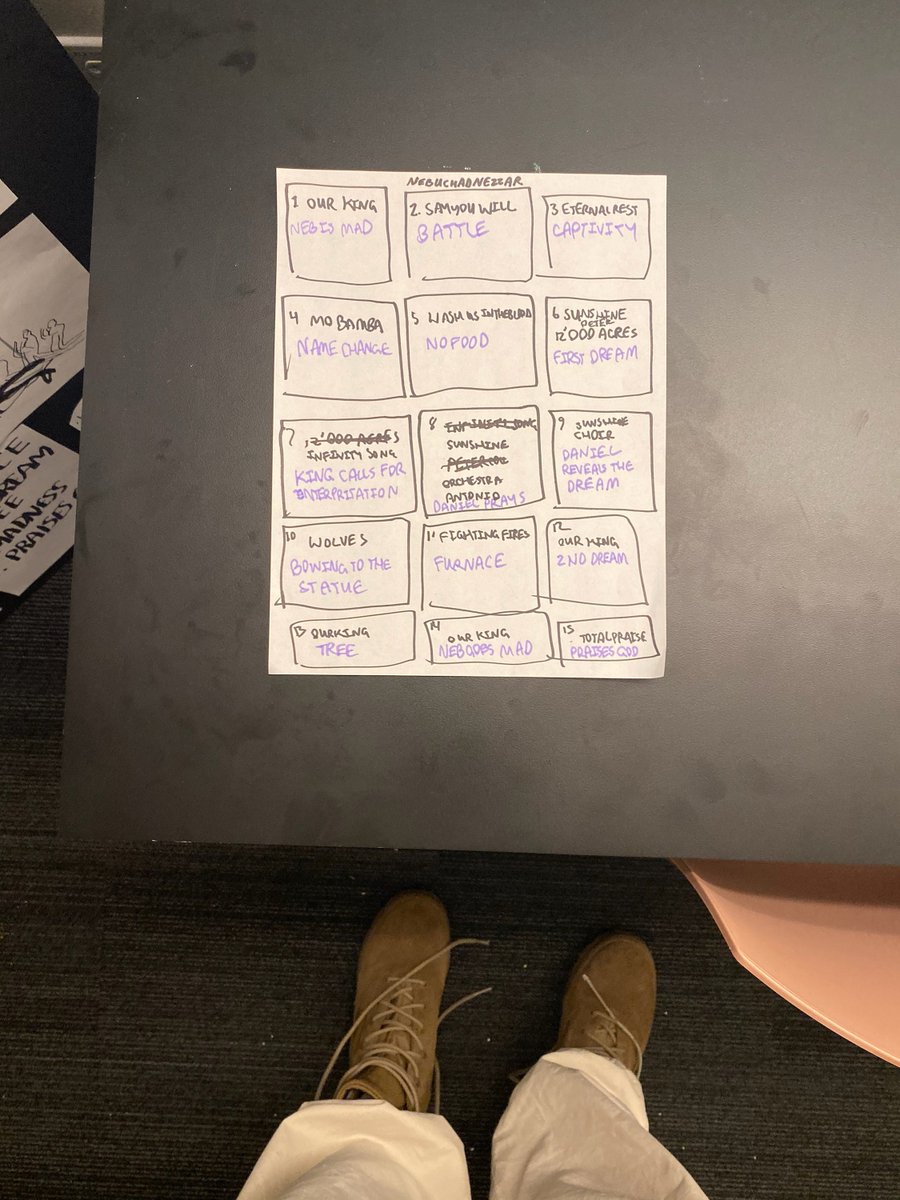 NEBUCHADNEZZAR
1 OUR KING
NEB IS MAD
2. SAMYOU WILL
BATTLE
3 ETERNAL REST
CAPTIVITY
4 MO BAMBA
NAME CHANGE
5 WASH US IN THE BLOOD
NO FOOD
6 SUNSHINE
PETER
12'000 ACRES
FIRST DREAM
7 12'000 ACRES
INFINITY SONG
KING CALLS FOR
INTERPRITATION
8 INFINITY SONG
SUNSHINE
ORCHESTRA
ANTONIO
DANIEL PRAYS
9 SUNSHINE
CHOIR
DANIEL
REVEALS THE
DREAM
10 WOLVES
BOWING TO THE
STATUE
11 FIGHTING FIRES
FURNACE
12
OUR KING
2ND DREAM
13 OUR KING
TREE
14
OUR KING
NEB GOES MAD
15
TOTAL PRAISE
PRAISES GOD
MADNESS
PRAISES